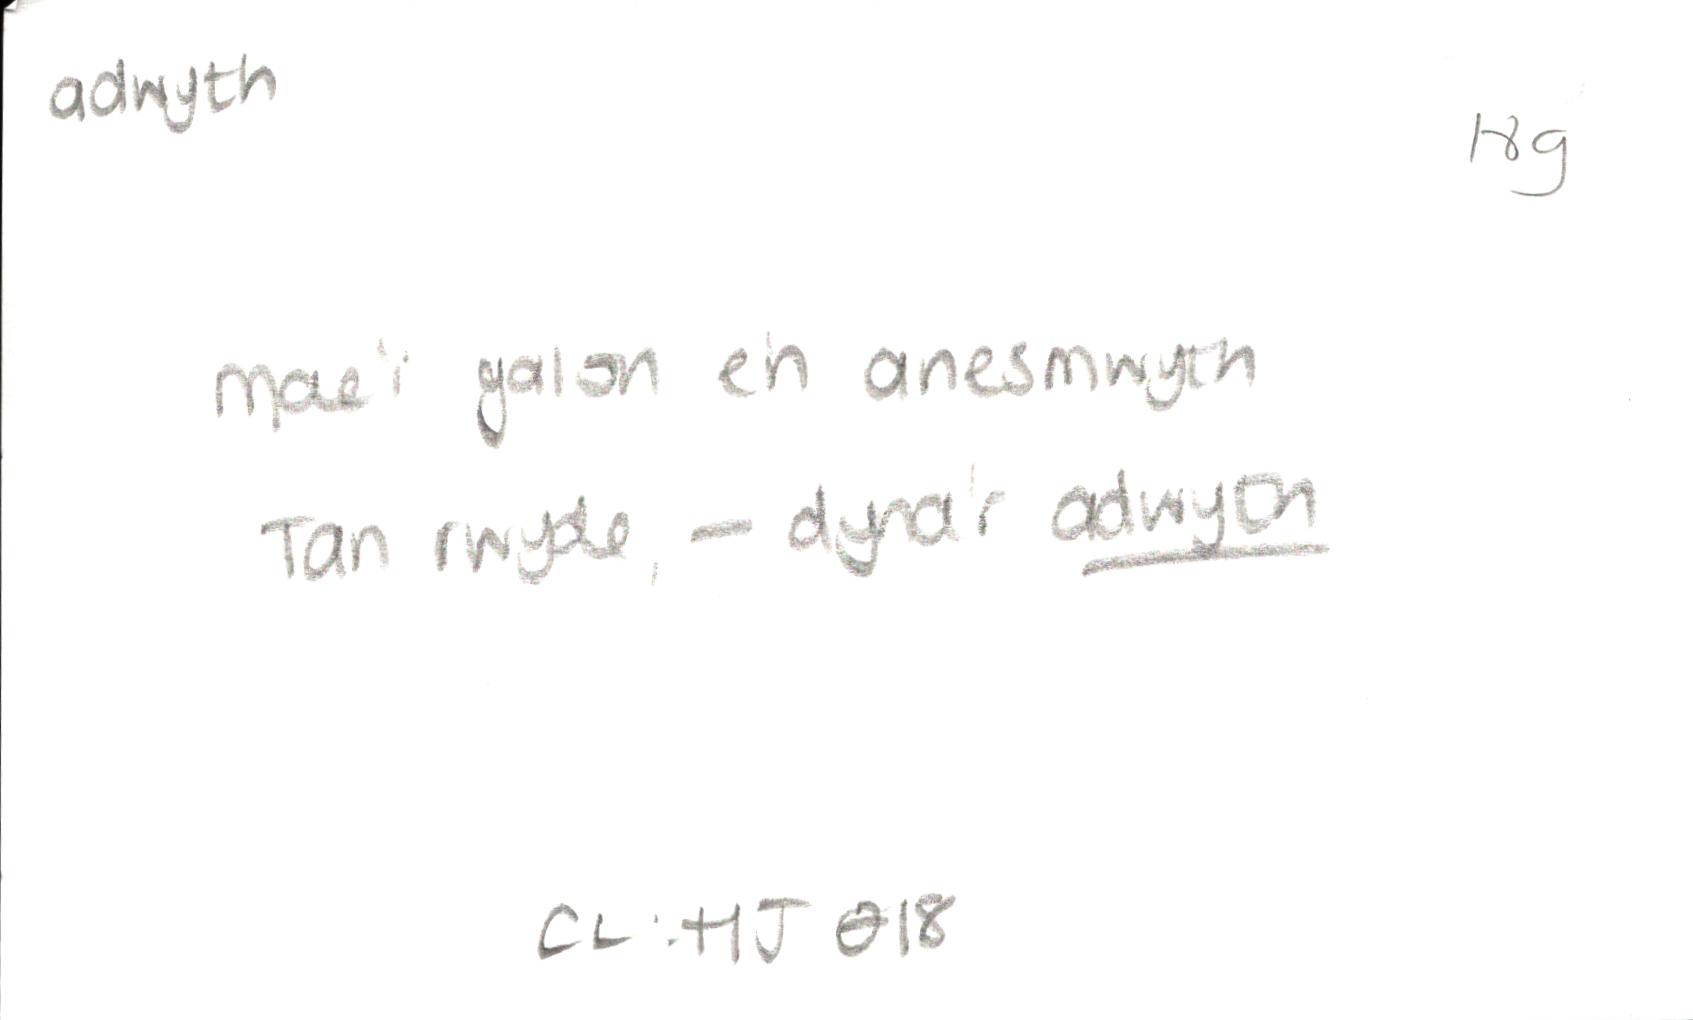 adwyth
18g
Mae'i galon e'n anesmwyth
Tan rwyde, – dyna'r adwyth
CL: HJ 218